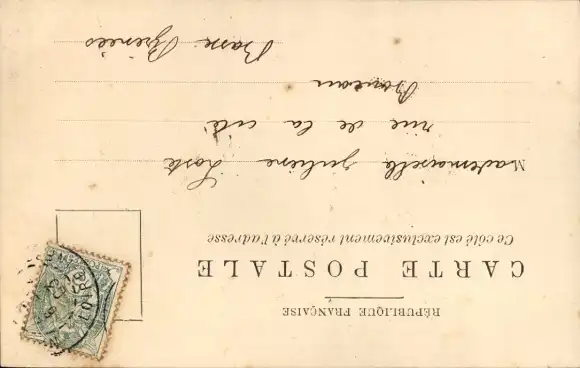 RÉPUBLIQUE FRANÇAISE
CARTE POSTALE
Ce côté est exclusivement réservé à l'adresse
Mademoiselle
rue de la cité
Basses Pyrénées